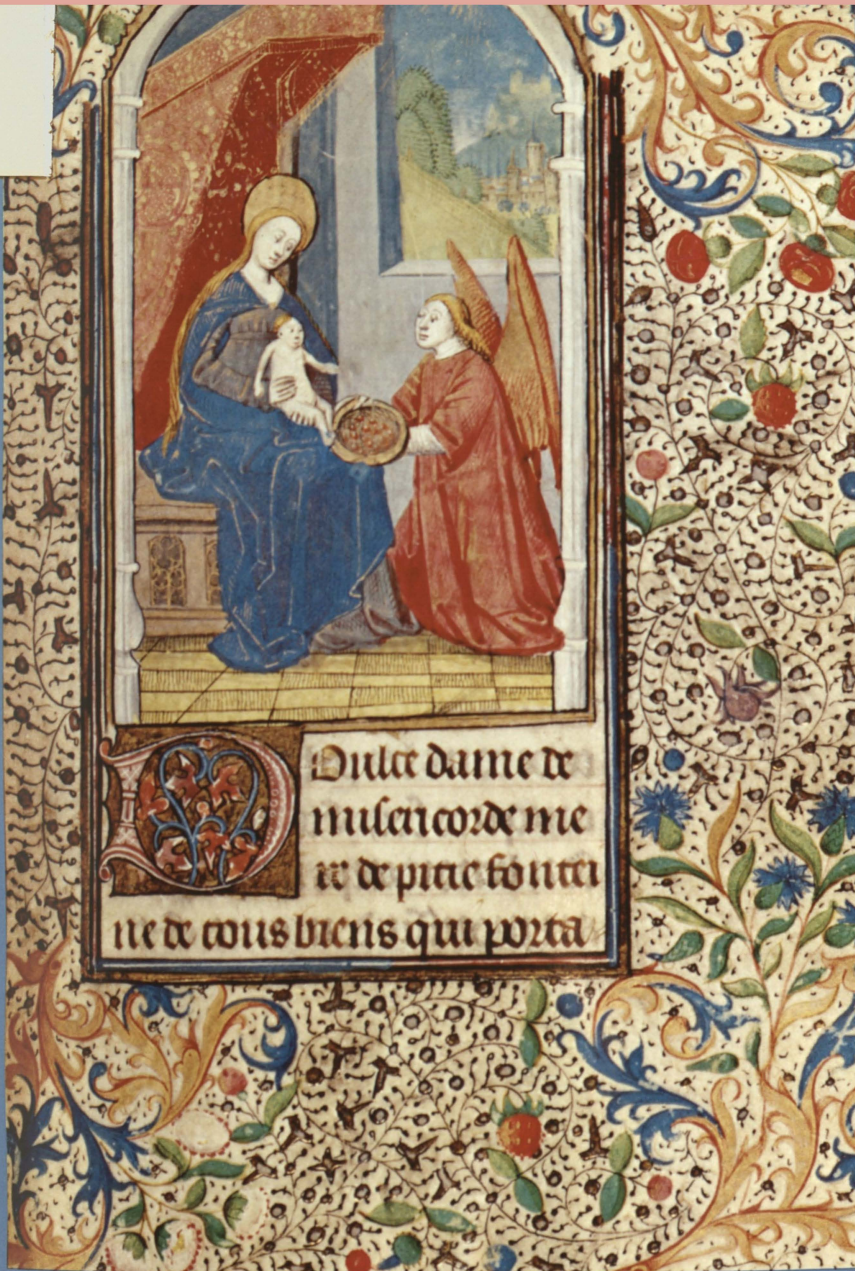 Dulce dame de
misericorde me
re de pitie fontei
ne de tous biens qui porta